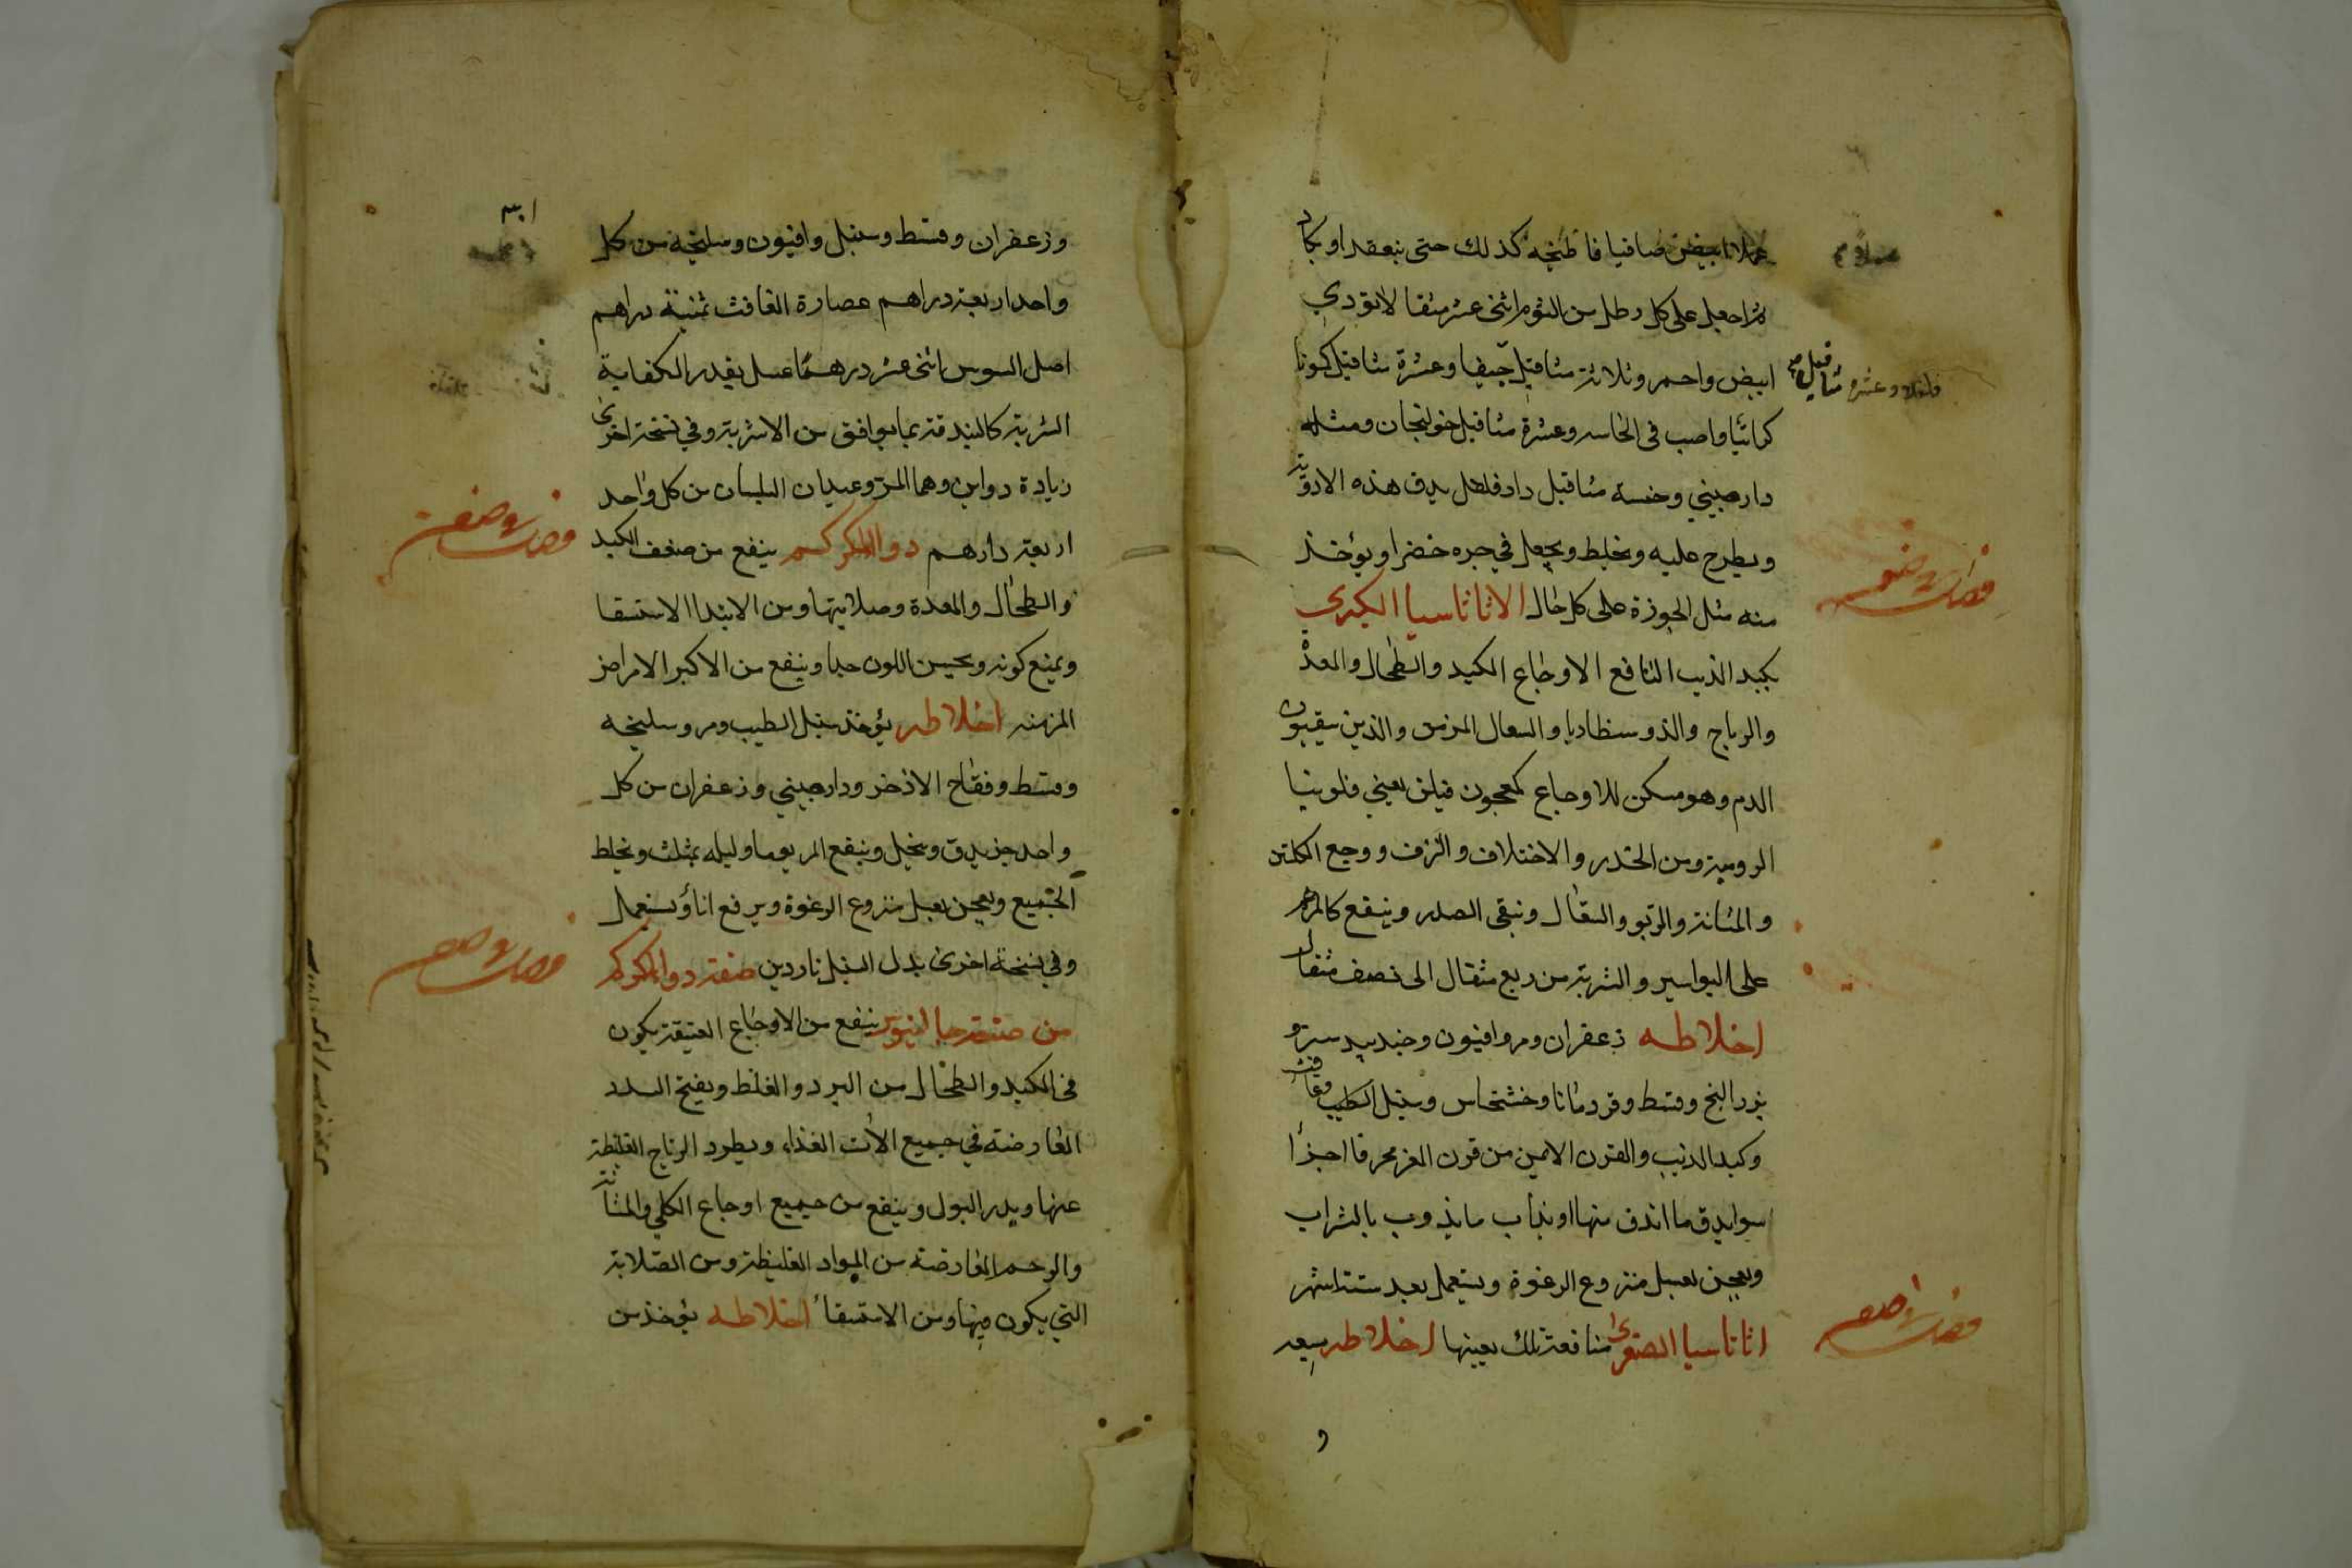 عسلا ابيض صافيا فاطبخه كذلك حتى ينعقد او يكاد
ثم اجعل على كل رطل من الثوم اثنى عشر مثقالا تودري
ابيض واحمر وثلاثة مثاقيل وعشرة مثاقيل كمونا
كرمانيا واصب فى الخاسه وعشرة مثاقيل خولنجان ومثله
دارصيني وخمسة مثاقيل دارفلفل يدق هذه الادوية
ويطرح عليه ويخلط ويجعل في جره خضرا ويؤخذ
منه مثل الجوزة على كل حال الاثاناسيا الكبري
بكبد الذيب النافع الاوجاع الكبد والطحال والمعدة
والرياح والذوسنطاديا والسعال المزمن والذين يقيئون
الدم وهو مسكن للاوجاع كمعجون فيلن يعني فلونيا
الرومية ومن الخدر والاختلاف والنزف ووجع الكليتين
والمثانة والربو والسعال وينقى الصدر وينفع كالمرهم
على البواسير والشربة من ربع مثقال الى نصف مثقال
اخلاطه زعفران ومر وافيون وجندبيدستر و
بزر البنج وقسط وقردمانا وخشخاش وسنبل الطيب وغافث
وكبد الذيب والقرن الايمن من قرن المعز محرقا اجزأ
سوا يدق ما اندق منها او يذاب ما يذوب بالشراب
ويعجن بعسل منزوع الرغوة ويستعمل بعد ستة اشهر
اثاناسيا الصغرى منافعة تلك بعينها اخلاطه ميعه
و
مثاقيل
وعشره
٣٠١
وزعفران وقسط وسنبل وافيون وسليخه من كل
واحد اربعة دراهم عصارة الغافث ثمنية دراهم
اصل السوس اثنى عشر درهما عسل بقدر الكفاية
الشربة كالبندقة بما يوافق من الاشربة وفي نسخة اخرى
زيادة دواين وهما المر وعيدان البلسان من كل واحد
اربعة دارهم دوا الكركم ينفع من ضعف الكبد
والطحال والمعدة وصلابتها ومن الابتدا الاستسقا
ويمنع كونه ويحسن اللون جدا وينفع من الاكبر الامراض
المزمنه اخلاطه يؤخذ سنبل الطيب ومر وسليخه
وقسط وفقاح الاذخر ودارصيني وزعفران من كل
واحد جز يدق وينخل وينقع المر يوما وليله بمثلث ويخلط
الجميع ويعجن بعسل منزوع الرغوة ويرفع اناؤ يستعمل
وفي نسخة اخرى بدل السنبل ناردين صفة دوا الكركم
من صنعة جالينوس ينفع من الاوجاع العتيقة يكون
فى الكبد والطحال من البرد والغلظ ويفتح السدد
العارضة في جميع الات الغذاء ويطرد الرياح الغليظة
عنها ويدر البول وينفع من جميع اوجاع الكلى والمثانة
والرحم العارضة من المواد الغليظة ومن الصلابة
التي يكون فيها ومن الاستسقا اخلاطه يؤخذ من